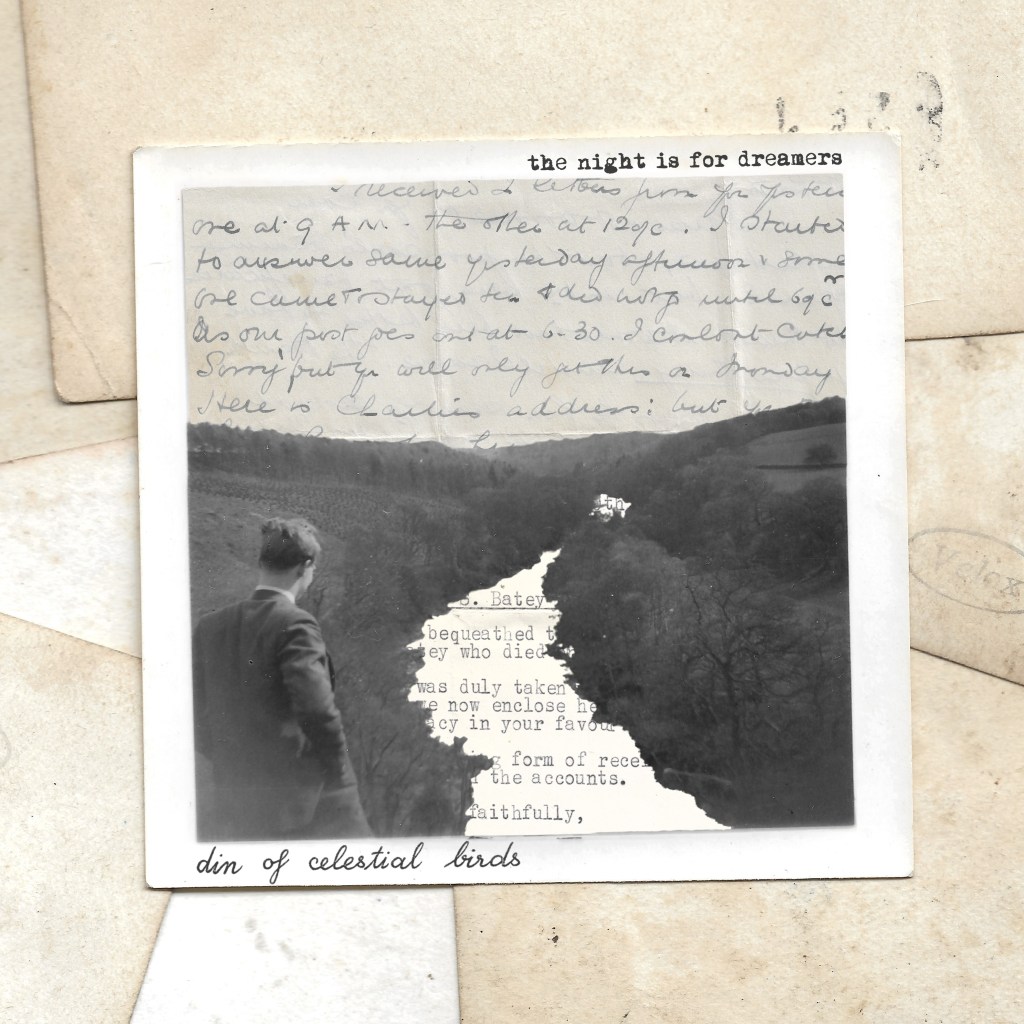 the night is for dreamers
received 2 letters from you
one at 9 A.M. - the other at 12 o/c. I started
to answer same yesterday afternoon & some
one came & stayed tea & did not go until 6 o/c
As our post goes out at 6-30. I couldnt catch
Sorry but you will only get this on Monday
Here is Charlies address: but
th
S. Batey
bequeathed t
ey who died
was duly taken
e now enclose he
acy in your favour
g form of recei
the accounts.
faithfully,
din of celestial birds